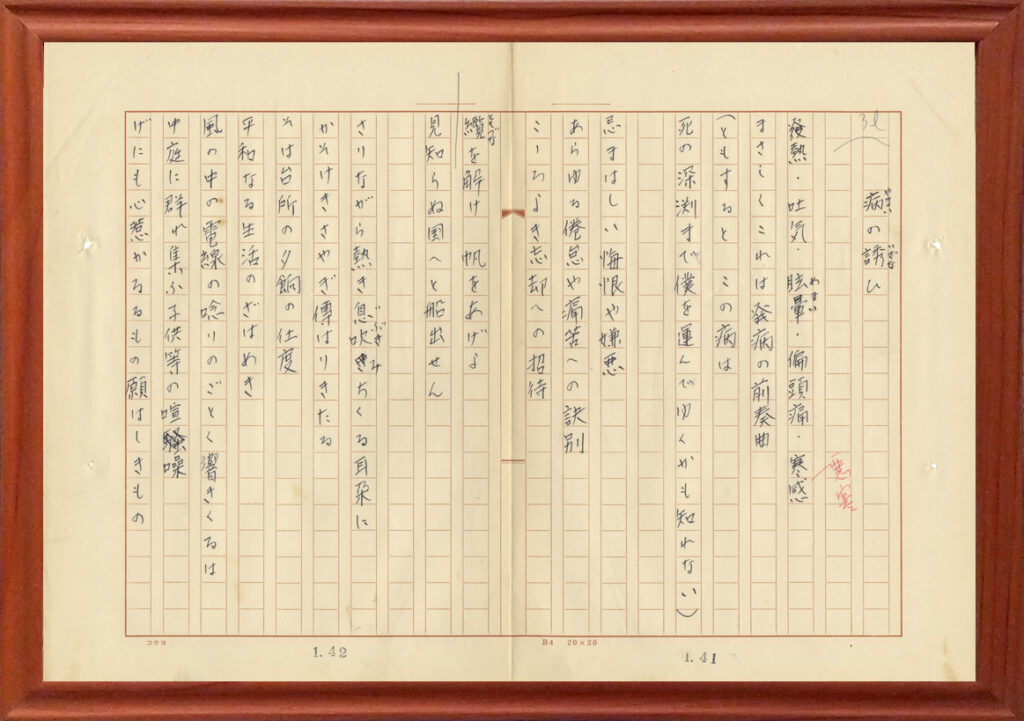 31
病の誘ひ
やまい
いざな
悪寒
發熱・吐気・眩暈・偏頭痛・寒感
めまい
まさしくこれは発病の前奏曲
(ともすると この病は
死の深渕まで僕を運んでゆくかも知れない)
忌まはしい悔恨や嫌悪
あらゆる倦怠や痛苦への訣別
こころよき忘却への招待
纜を解け 帆をあげよ
ともづな
見知らぬ国へと船出せん
さりながら熱き息吹きみちくる耳朶に
いぶき
かそけきさやぎ傳はりきたる
そは台所の夕餉の仕度
平和なる生活のざはめき
風の中の電線の唸りのごとく響きくるは
中庭に群れ集ふ子供等の喧噪
げにも心惹かるるもの願はしきもの
コクヨ
1.42
B4 20×20
1.41